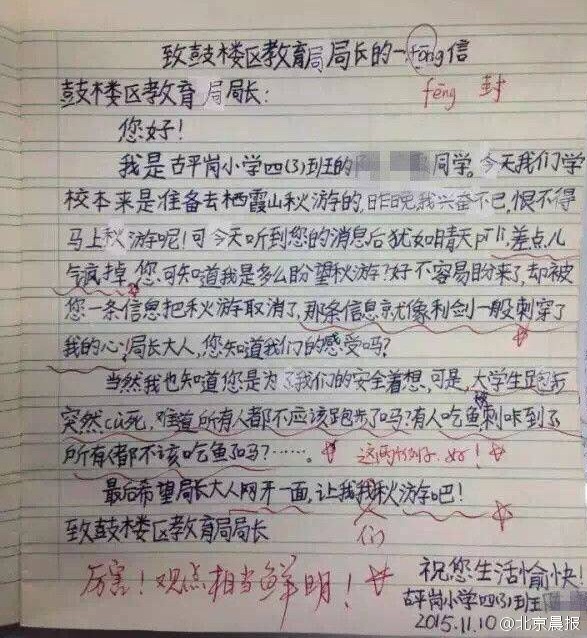 致鼓楼区教育局局长的一fōng信
fēng 封
鼓楼区教育局局长:
您好!
我是古平岗小学四(3)班的 同学。今天我们学
校本来是准备去栖霞山秋游的,昨晚,我兴奋不已,恨不得
马上秋游呢!可今天听到您的消息后犹如晴天pī lì,差点儿
气疯掉。您可知道我是多么盼望秋游?好不容易盼来了,却被
您一条信息把秋游取消了,那条信息就像利剑一般刺穿了
我的心!局长大人,您知道我们的感受吗?
当然我也知道您是为了我们的安全着想,可是,大学生跑步
突然cù死,难道所有人都不应该跑步了吗?有人吃鱼刺咔到了
所有人都不该吃鱼了吗?……。 这两个例子,好!
最后希望局长大人网开一面,让我我秋游吧!
们
致鼓楼区教育局局长
厉害!观点相当鲜明!
祝您生活愉快!
古平岗小学四(3)班
2015.11.10
@北京晨报